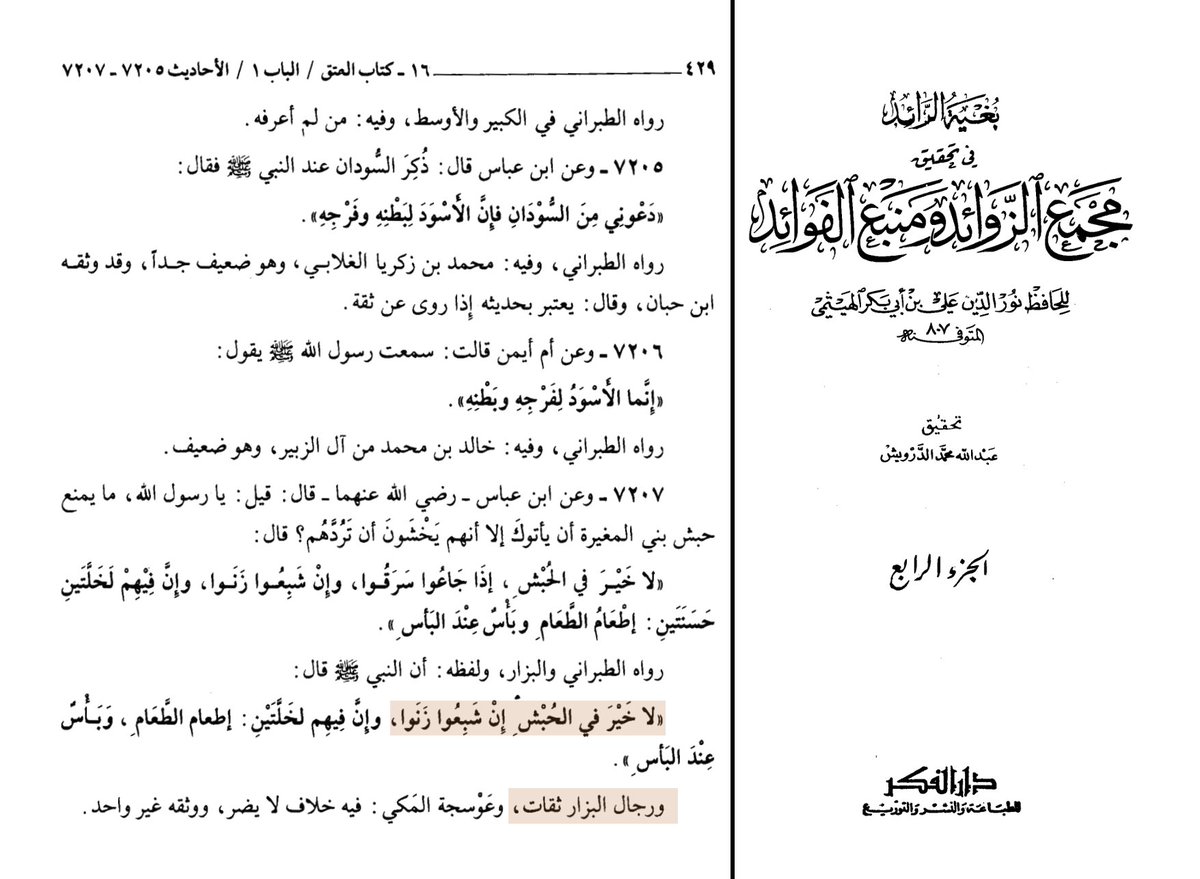 ٤٢٩ ــــ ١٦ - كتاب العتق / الباب ١ / الأحاديث ٧٢٠٥ - ٧٢٠٧
رواه الطبراني في الكبير والأوسط، وفيه: من لم أعرفه.
٧٢٠٥ - وعن ابن عباس قال: ذُكِرَ السُّودان عند النبي ﷺ فقال:
«دَعُونِي مِنَ السُّوْدَانِ فإِنَّ الأَسْوَدَ لِبَطْنِهِ وفَرْجِهِ».
رواه الطبراني، وفيه: محمد بن زكريا الغلابي، وهو ضعيف جداً، وقد وثقه
ابن حبان، وقال: يعتبر بحديثه إِذا روى عن ثقة.
٧٢٠٦ - وعن أم أيمن قالت: سمعت رسول الله ﷺ يقول:
«إِنَّما الأَسْوَدُ لِفَرْجِهِ وبَطْنِهِ».
رواه الطبراني، وفيه: خالد بن محمد من آل الزبير، وهو ضعيف.
٧٢٠٧ - وعن ابن عباس - رضي الله عنهما - قال: قيل: يا رسول الله، ما يمنع
حبش بني المغيرة أن يأتوكَ إلا أنهم يَخْشَونَ أن تَرُدَّهُم؟ قال:
«لا خَيْرَ في الحُبْشِ، إذَا جَاعُوا سَرَقُوا، وإنْ شَبِعُوا زَنَوا، وإنَّ فِيْهِمْ لَخَلَّتَينِ
حَسَنَتَينِ: إطْعَامُ الطَّعَامِ وبَأْسٌ عِنْدَ البَأسِ».
رواه الطبراني والبزار، ولفظه: أن النبي ﷺ قال:
«لا خَيْرَ في الحُبْشِ إنْ شَبِعُوا زَنَوا، وإنَّ فيهِم لخَلَّتَيْنِ: إطعام الطَّعَامِ، وَبَأْسٌ
عِنْدَ البَأسِ».
ورجال البزار ثقات، وعَوْسجة المَكي: فيه خلاف لا يضر، ووثقه غير واحد.
بُغيَة الرَّائِد
في تحقيق
مَجْمَع الزَّوائِد ومَنبَع الفَوائِد
للحَافظ نُور الدِّين عَلي بن أبي بَكر الهَيثَمي
المتَوفى سنة ٨٠٧ هـ
تحقيق
عَبْدالله محمَّد الدَّرويش
الجزء الرابع
دار الفكر
للطبَاعَة وَالنشر وَالتوزيع